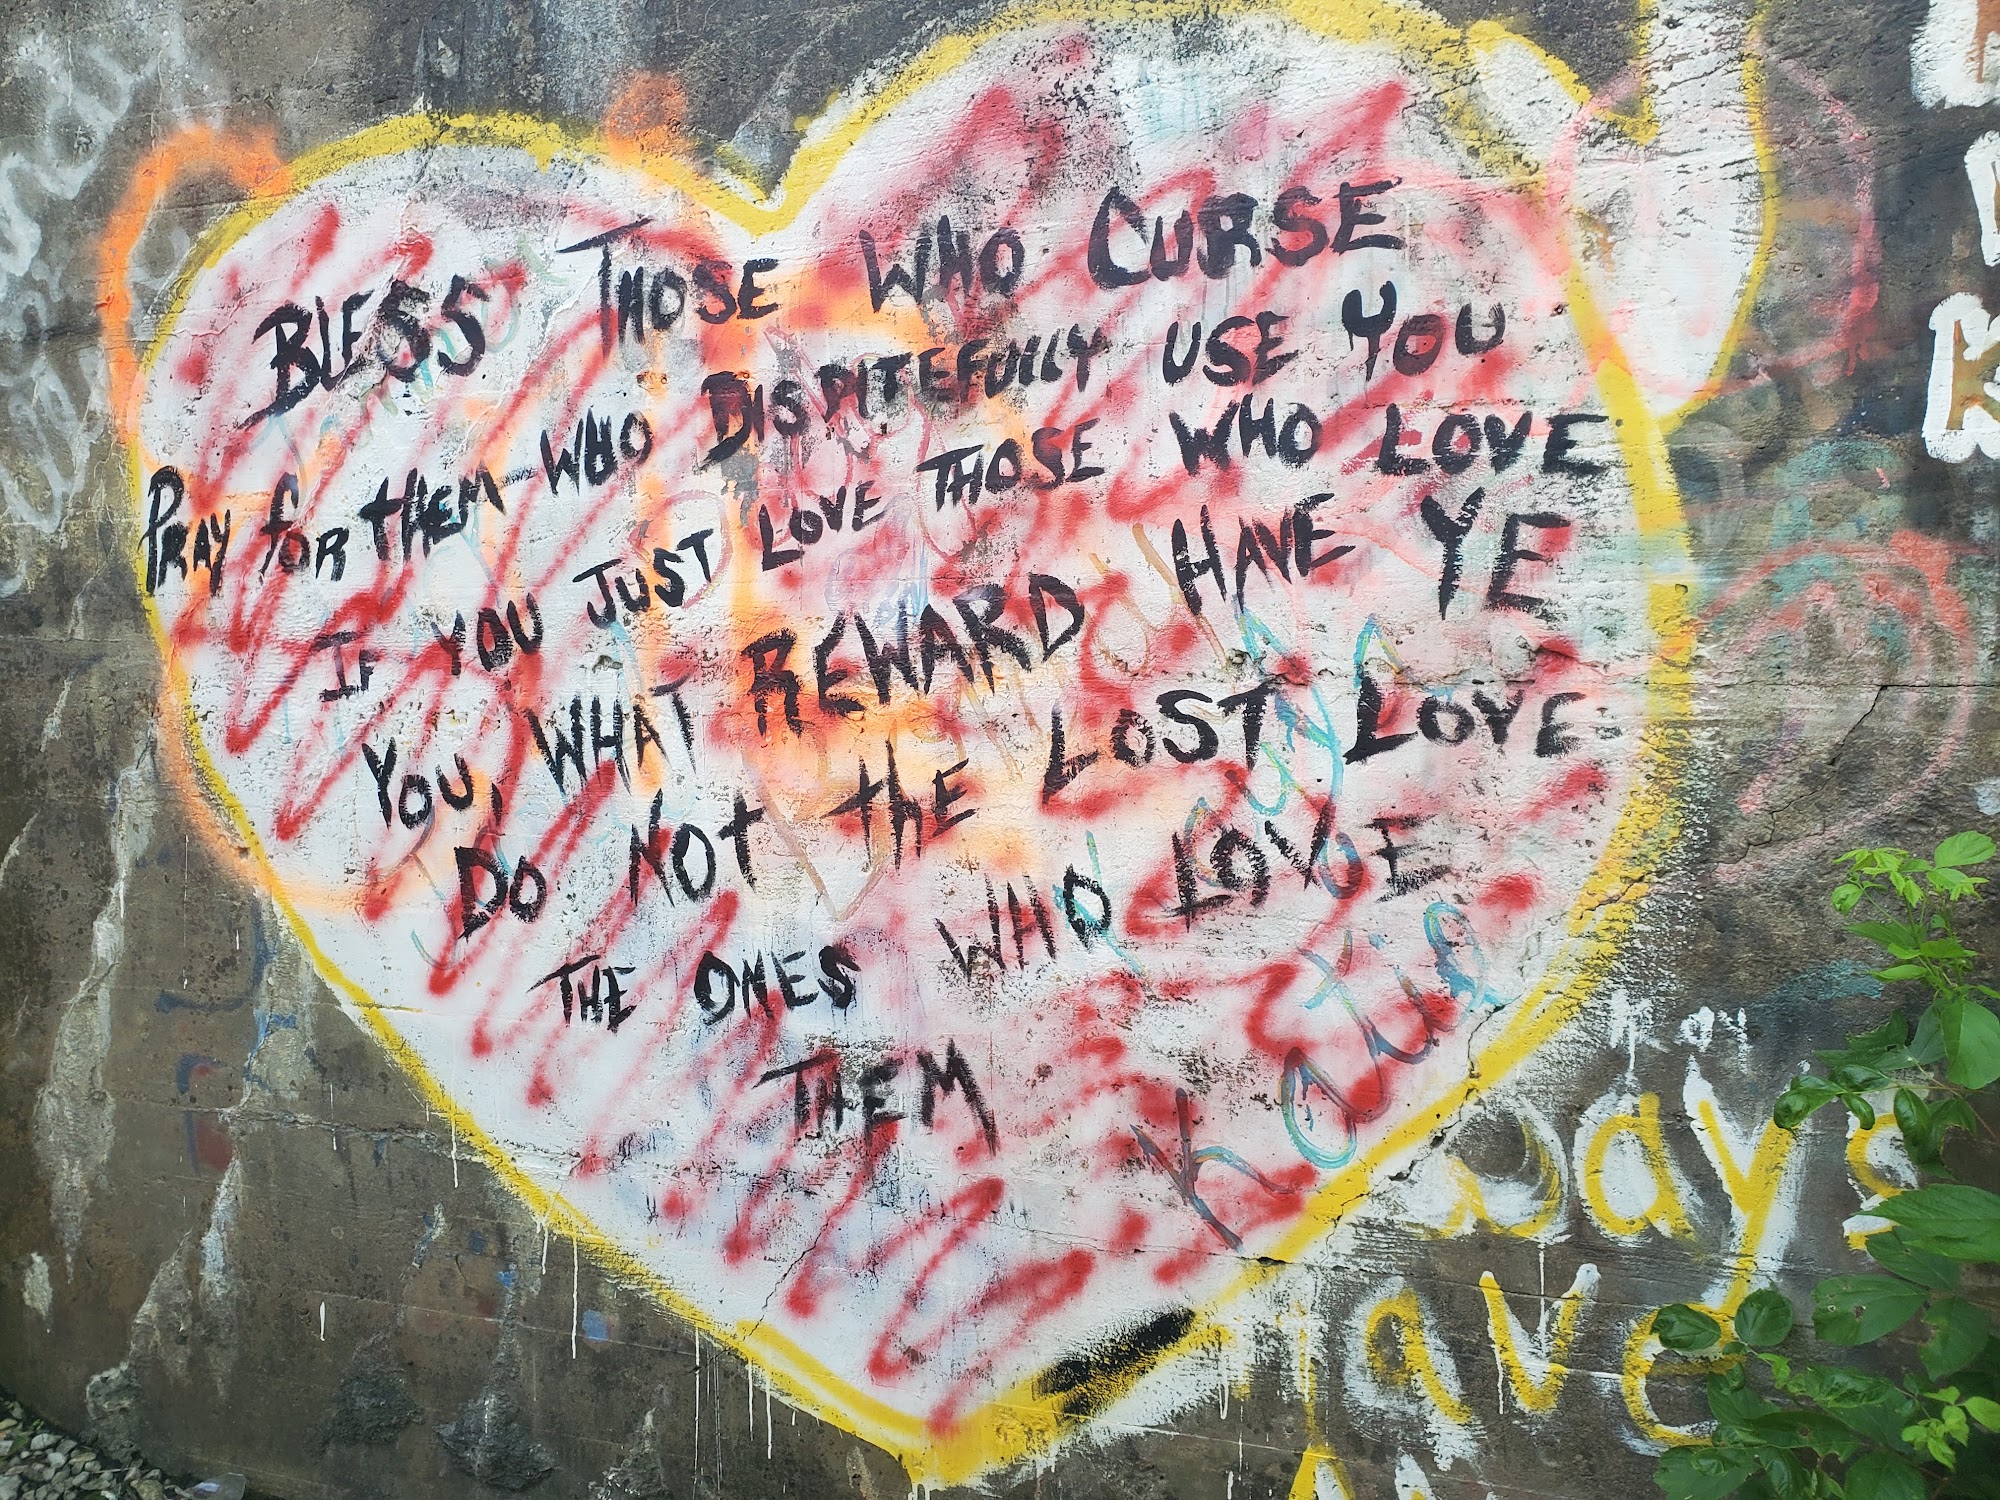 BLESS THOSE WHO CURSE
PRAY for tHEM WHO DISPITEFULLY USE YOU
IF YOU JUST LOVE THOSE WHO LOVE
YOU, WHAT REWARD HAVE YE
DO NOt tHE LOST LOVE
THE ONES WHO LOVE
THEM
Katie
Days